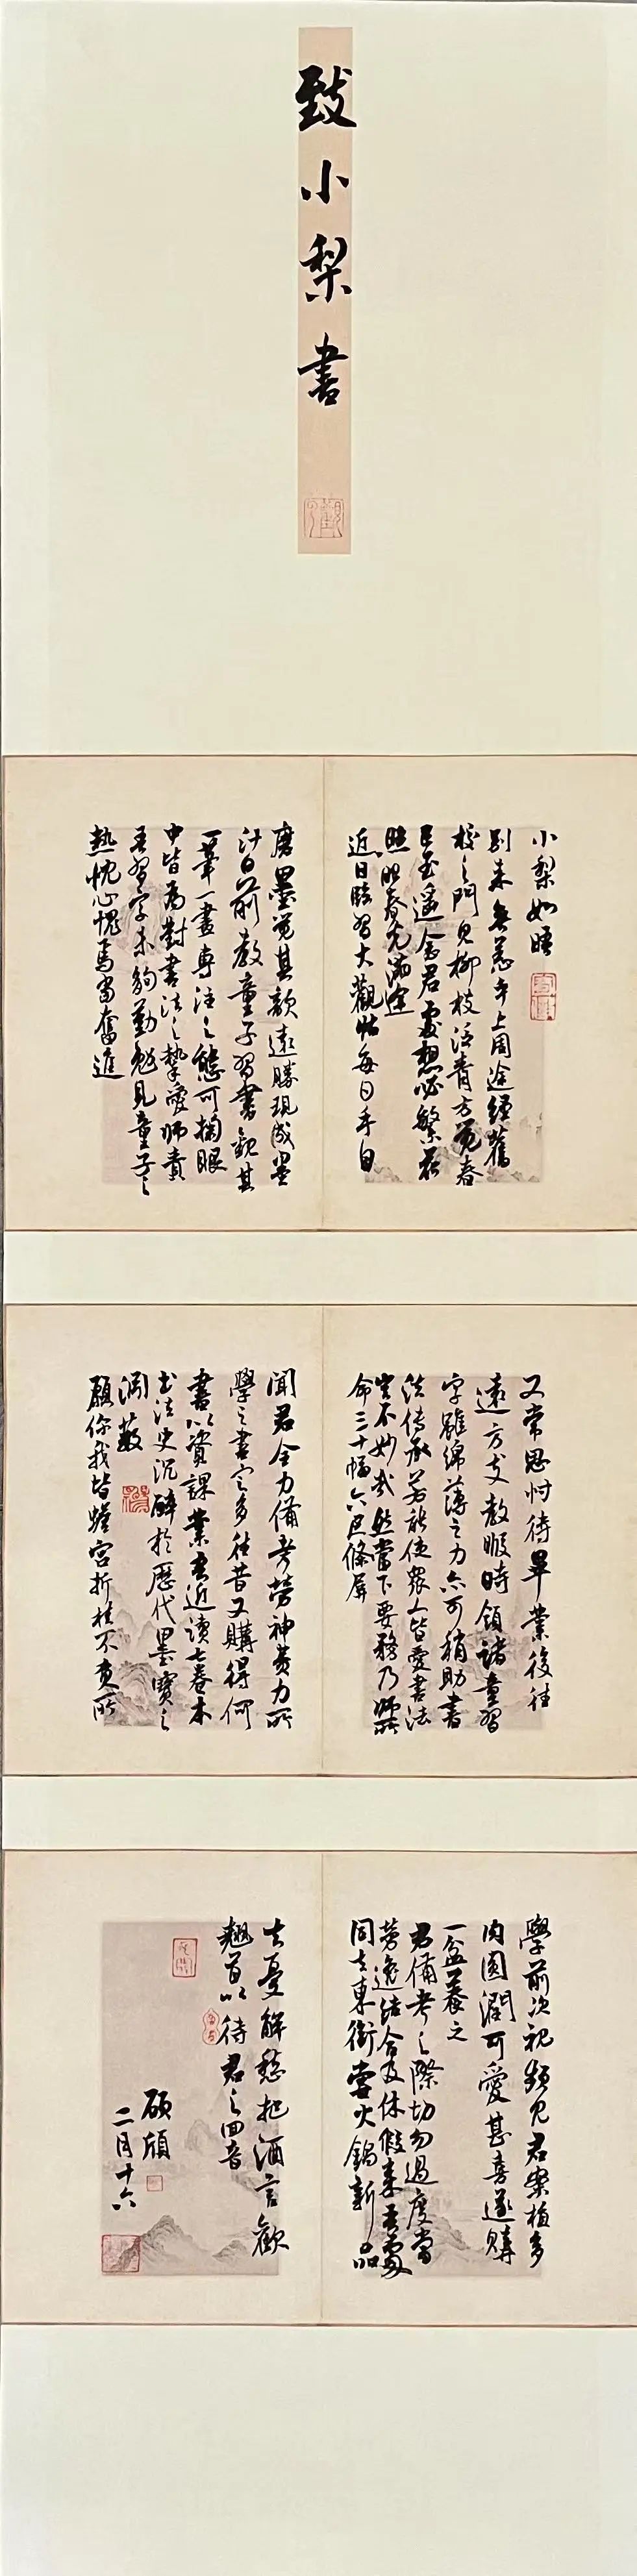 致小梨書
小梨如晤
別來無恙年上周途經舊
校之門見柳枝活青方覺春
已至遙念君處想必繁花
照眼春光滿塗
近日臨習大觀帖每日手自
磨墨覺其韻遠勝現成墨
汁日前教童子習書觀其
一筆一畫專注之態可掬眼
中皆為對書法之摯愛師責
吾習字未夠勤勉見童子之
熱忱心愧焉當奮進
又常思忖待畢業後往
遠方支教暇時領諸童習
字雖綿薄之力亦可稍助書
法傳承若能使眾人皆愛書法
豈不妙哉然當下要務乃師所
命三十幅六尺條屏
聞君全力備考勞神費力所
學之書定多往昔又購得何
書以資課業吾近讀七卷本
書法史沉醉於歷代墨寶之
淵藪
願你我皆蟾宮折桂不負所
學前次視頻見君案植多
肉圓潤可愛甚喜遂購
一盆養之
君備考之際切勿過度當
勞逸結合及休假來吾處
同去東街嘗火鍋新品
去憂解愁把酒言歡
翹首以待君之回音
碩頎
二月十六